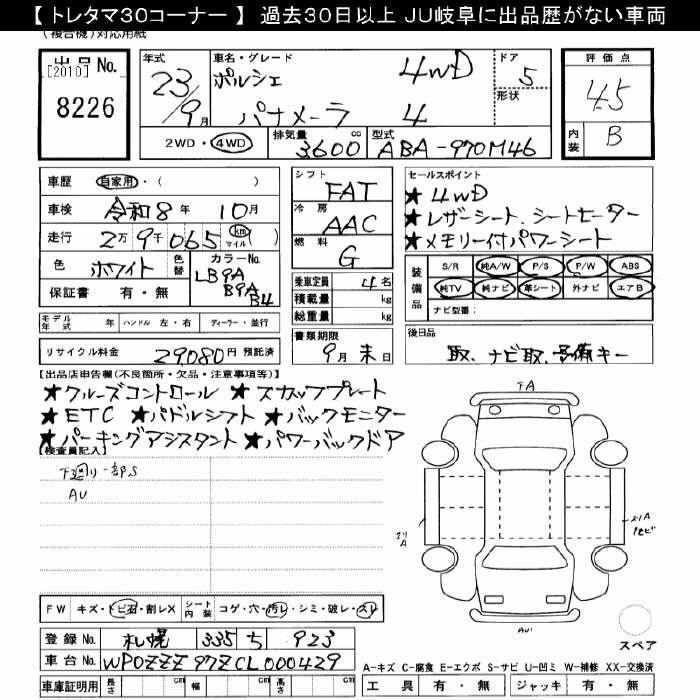 【 トレタマ30コーナー 】 過去30日以上 JU岐阜に出品歴がない車両
(複合機)対応用紙
出品No. [2010] 8226
年式 23/9月
車名・グレード ポルシェ 4WD
パナメーラ 4
ドア 5
形状
評価点 4.5
内装 B
2WD・4WD 排気量 3600cc 型式 ABA-970M46
車歴 自家用・( )
車検 令和8年 10月
走行 2万9千065 km マイル ( )
色 ホワイト 色替 カラーNo. LB9A B9A B4
保証書 有・無
シフト FAT
冷房 AAC
燃料 G
乗車定員 4名
積載量 kg
総重量 kg
セールスポイント
★4WD
★レザーシート、シートヒーター
★メモリー付パワーシート
装備品 S/R 純A/W P/S P/W ABS
純TV 純ナビ 革シート 外ナビ エアB
ナビ型番:
モデル年式 年 ハンドル 左・右 ディーラー・並行
リサイクル料金 29080円 預託済
書類期限 9月末日
後日品 取、ナビ取、予備キー
【出品店申告欄(不良箇所・欠品・注意事項等)】
★クルーズコントロール ★スカッフプレート
★ETC ★パドルシフト ★バックモニター
★パーキングアシスタント ★パワーバックドア
【検査員記入】
下廻り一部S
AU
下A
エリA
エリA
AU
FW キズ・トビ石・割レX シート内装 コゲ・穴・汚レ・シミ・破レ・スレ
登録No. 札幌 335 ち 923
車台No. WP0ZZZ97ZCL000429
車庫証明用 長さ cm 幅 cm 高さ cm
スペア
A-キズ C-腐食 E-エクボ S-サビ U-凹ミ W-補修 XX-交換済
工具 有・無 ジャッキ 有・無